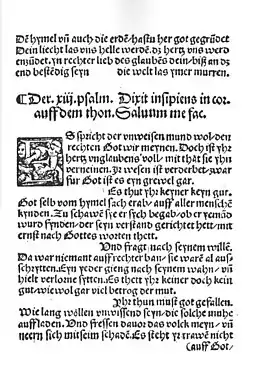 Dē hymel vñ auch die erdē/hastu her got gegrūdet
Dein liecht las vns helle werdē/dz hertz vns werd
entzūdet/yn rechter lieb des glaubēs dein/biß an dz
end bestēdig seyn die welt las ymer murren.
¶ Der. xiij. psalm. Dixit insipiens in cor.
auff dem thon. Saluum me fac.
ES spricht der vnweisen mund wol/den
rechten Got wir meynen. Doch ist yhr
hertz vnglaubens voll/mit that sie yhn
verneinen. Yr wesen ist verderbet/zwar
fur Got ist es eyn grewel gar.
Es thut yhr keyner keyn gut.
Got selb vom hymel sach erab/auff aller menschē
kynden. Zu schawē sye er sych begab/ob er yemād
wurd fynden/der seyn verstand gerichtet hett/mit
ernst nach Gottes worten thett.
Vnd fragt nach seynem willē.
Da war niemant auff rechter ban/sie warē al aus-
schrytten. Eyn yeder gieng nach seynem wahn/vñ
hielt verlorne sytten. Es thett yhr keiner doch kein
gut/wie wol gar viel betrog der mut.
Yhr thun must got gefallen.
Wie lang wöllen vnwissend seyn/die solche muhe
auffladen. Vnd fressen dauor das volck meyn/vñ
neern sich mit seim schadē. Es steht yr trawē nicht
(auff Got/